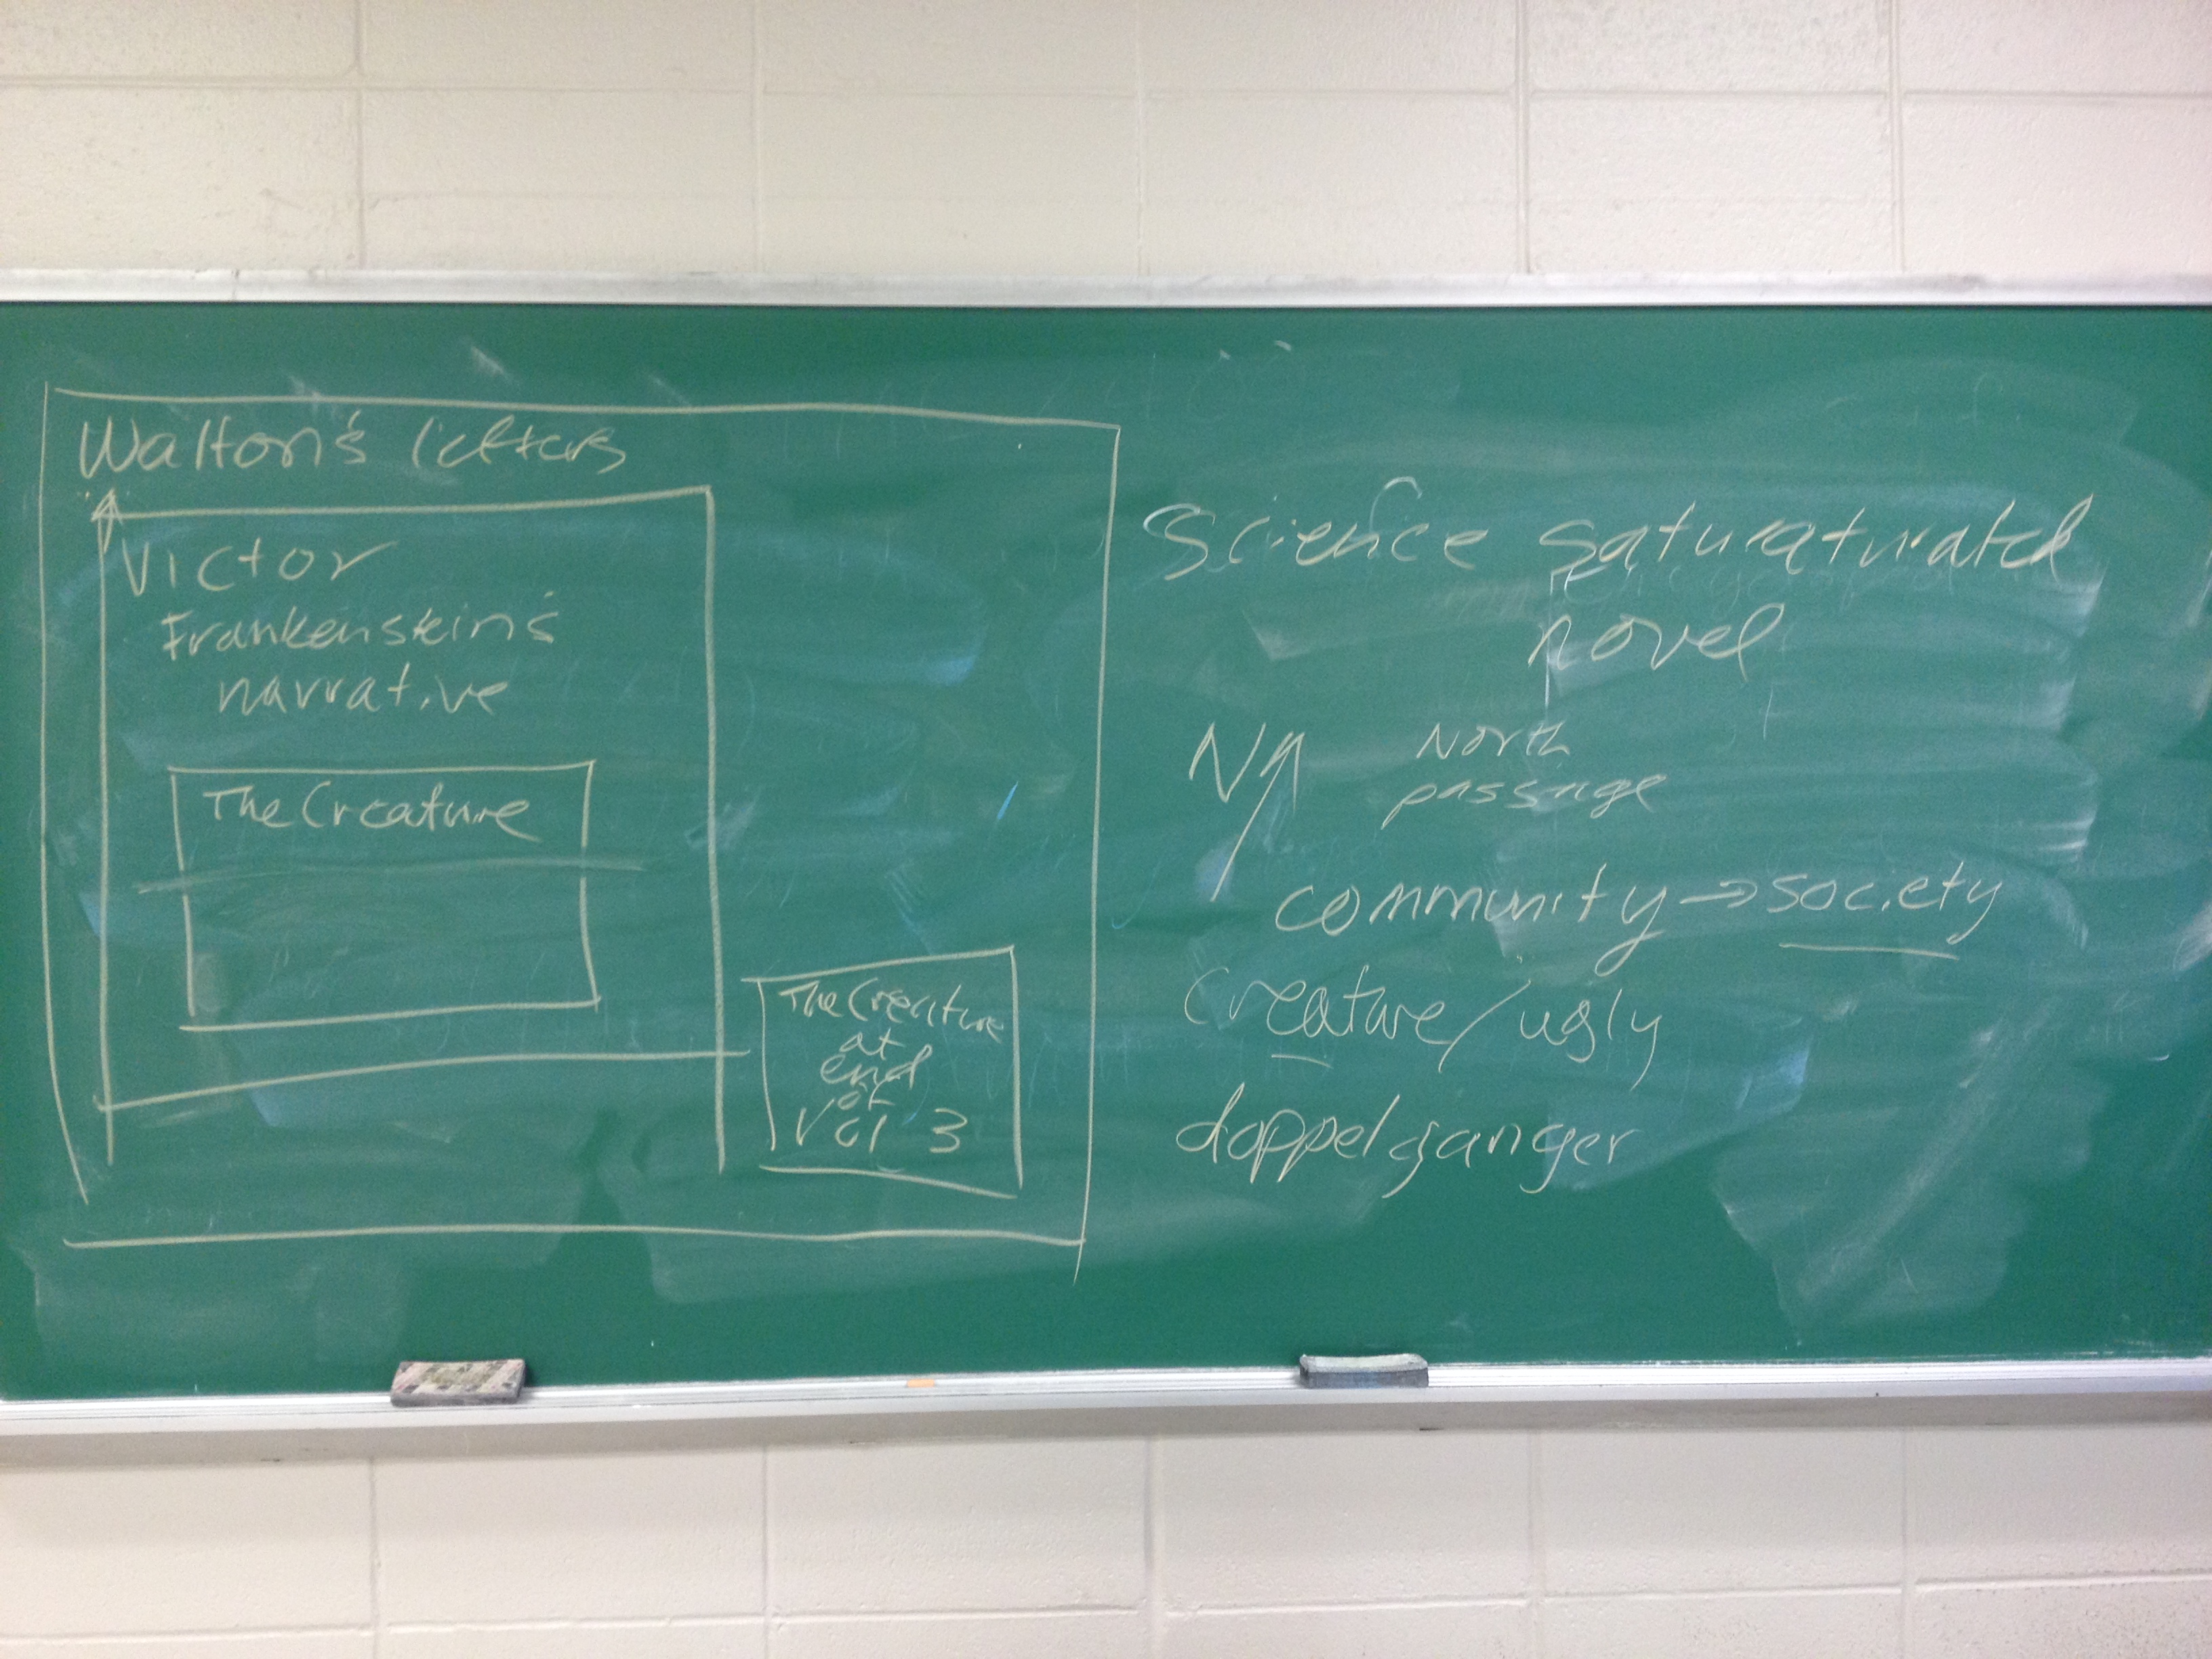 Walton's letters
Victor
Frankenstein's
narrative
The Creature
The Creature
at
end
of
Vol 3
Science saturaturated
novel
N
North
passage
community → society
creature/ugly
doppelganger